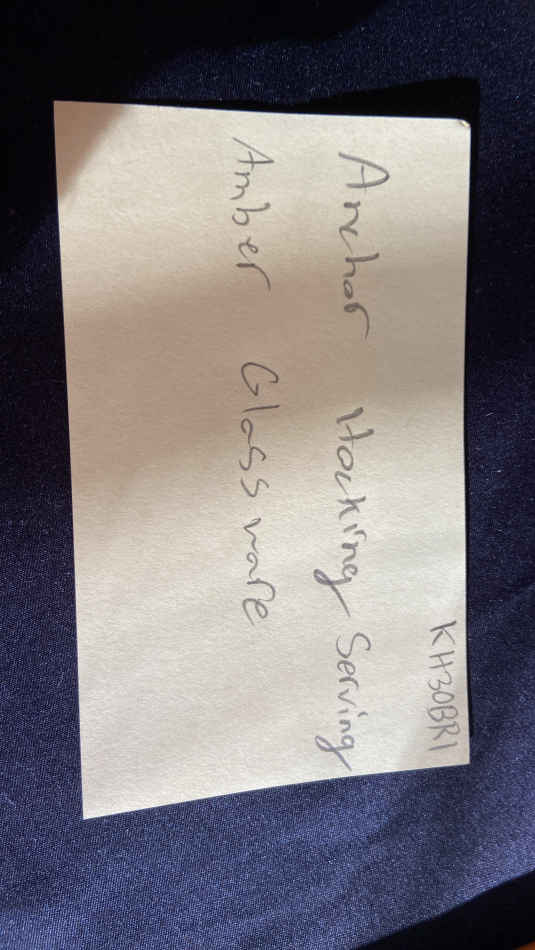 KH30BR1
Anchor Hocking Serving
Amber Glassware